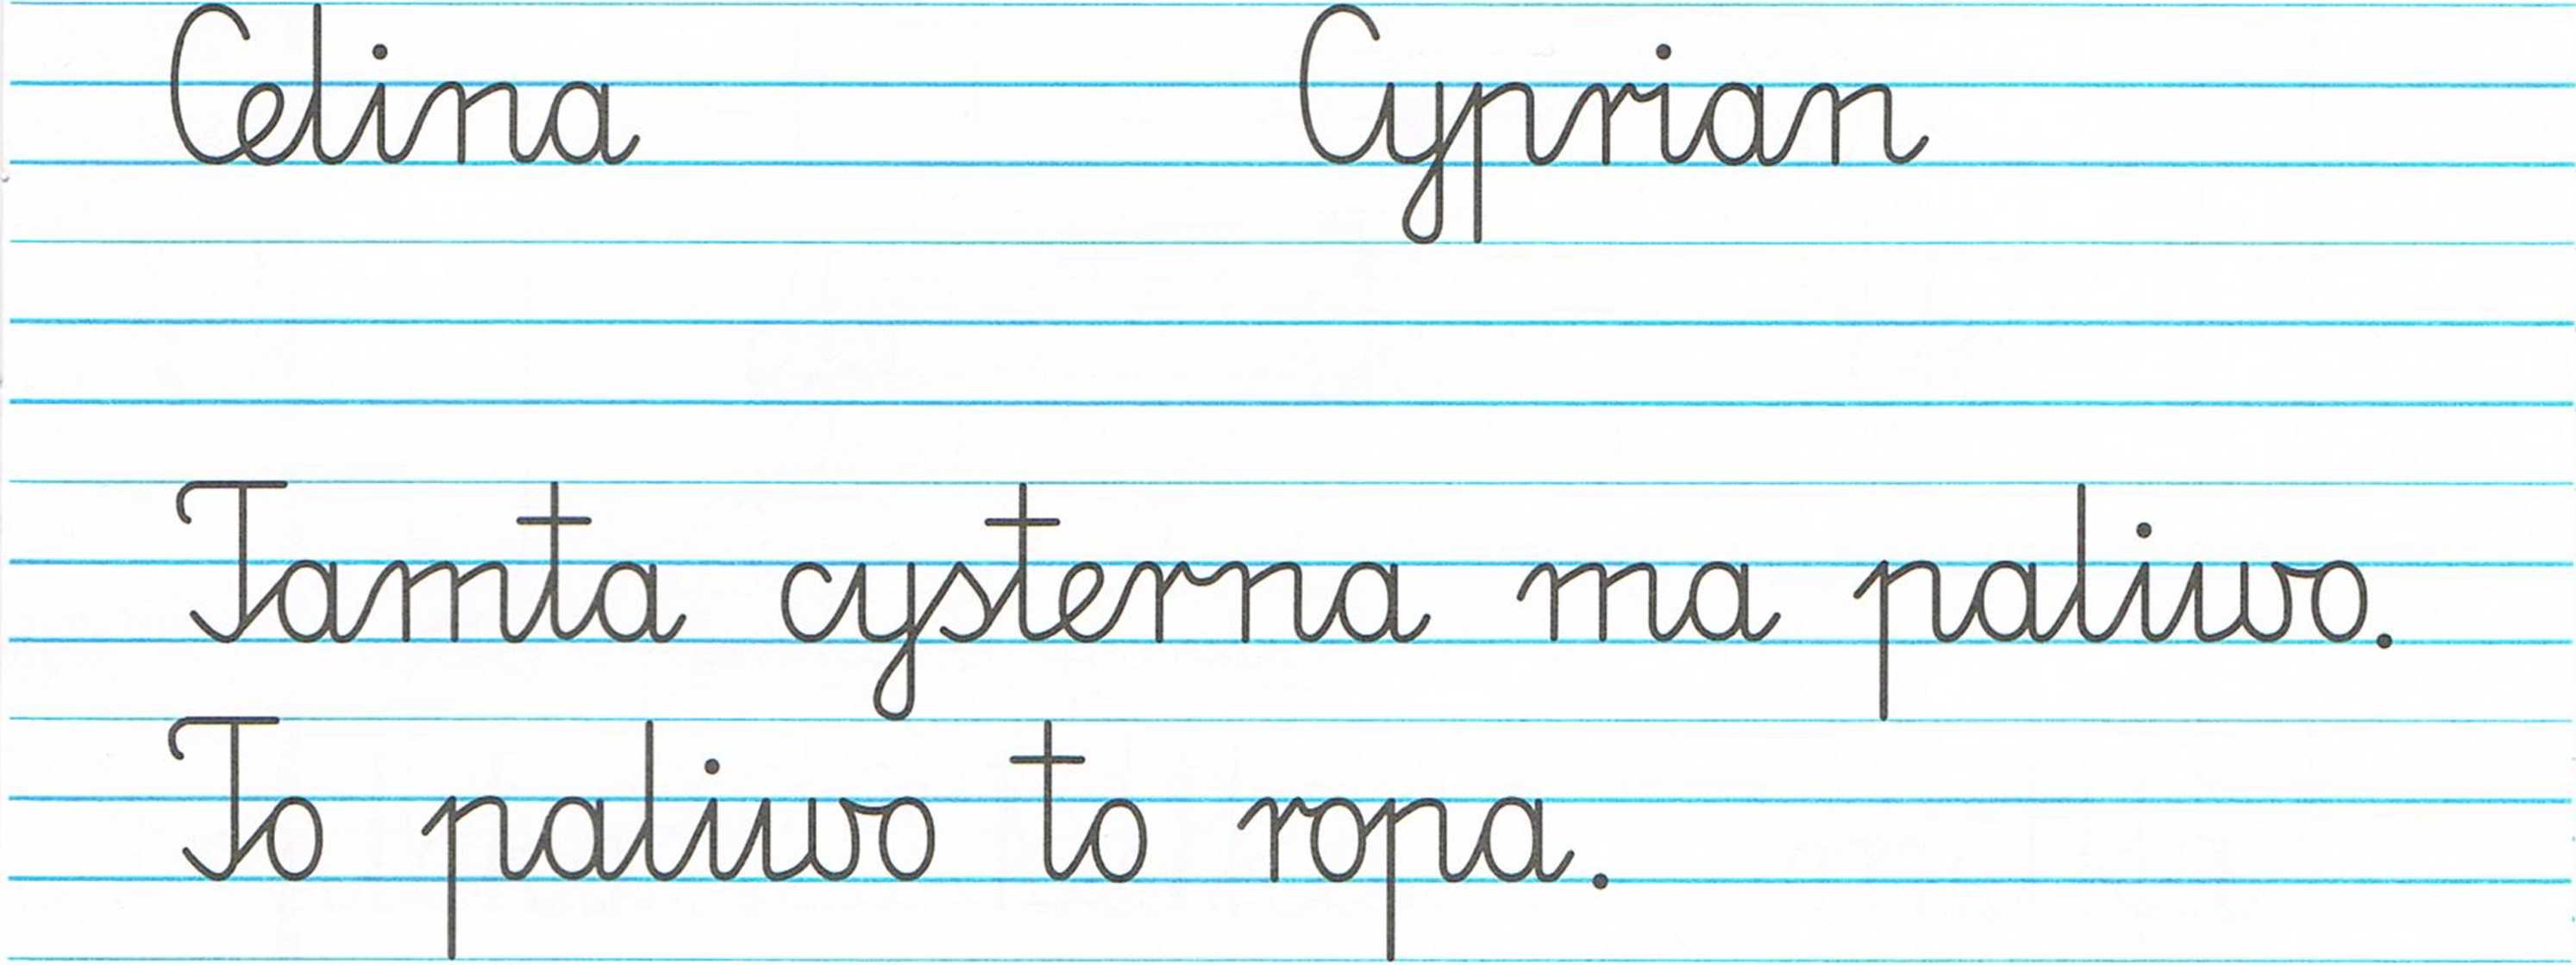 Celina Cyprian
Tamta cysterna ma paliwo.
To paliwo to ropa.